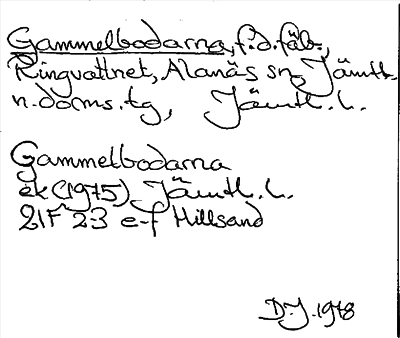 Gammelbodarna, f.d. fäb.,
Ringvattnet, Alanäs sn, Jämtl.
n. doms. tg, Jämtl. l.
Gammelbodarna
ek (1975) Jämtl. l.
21F 2-3 e-f Hillsand
D.J. 1978